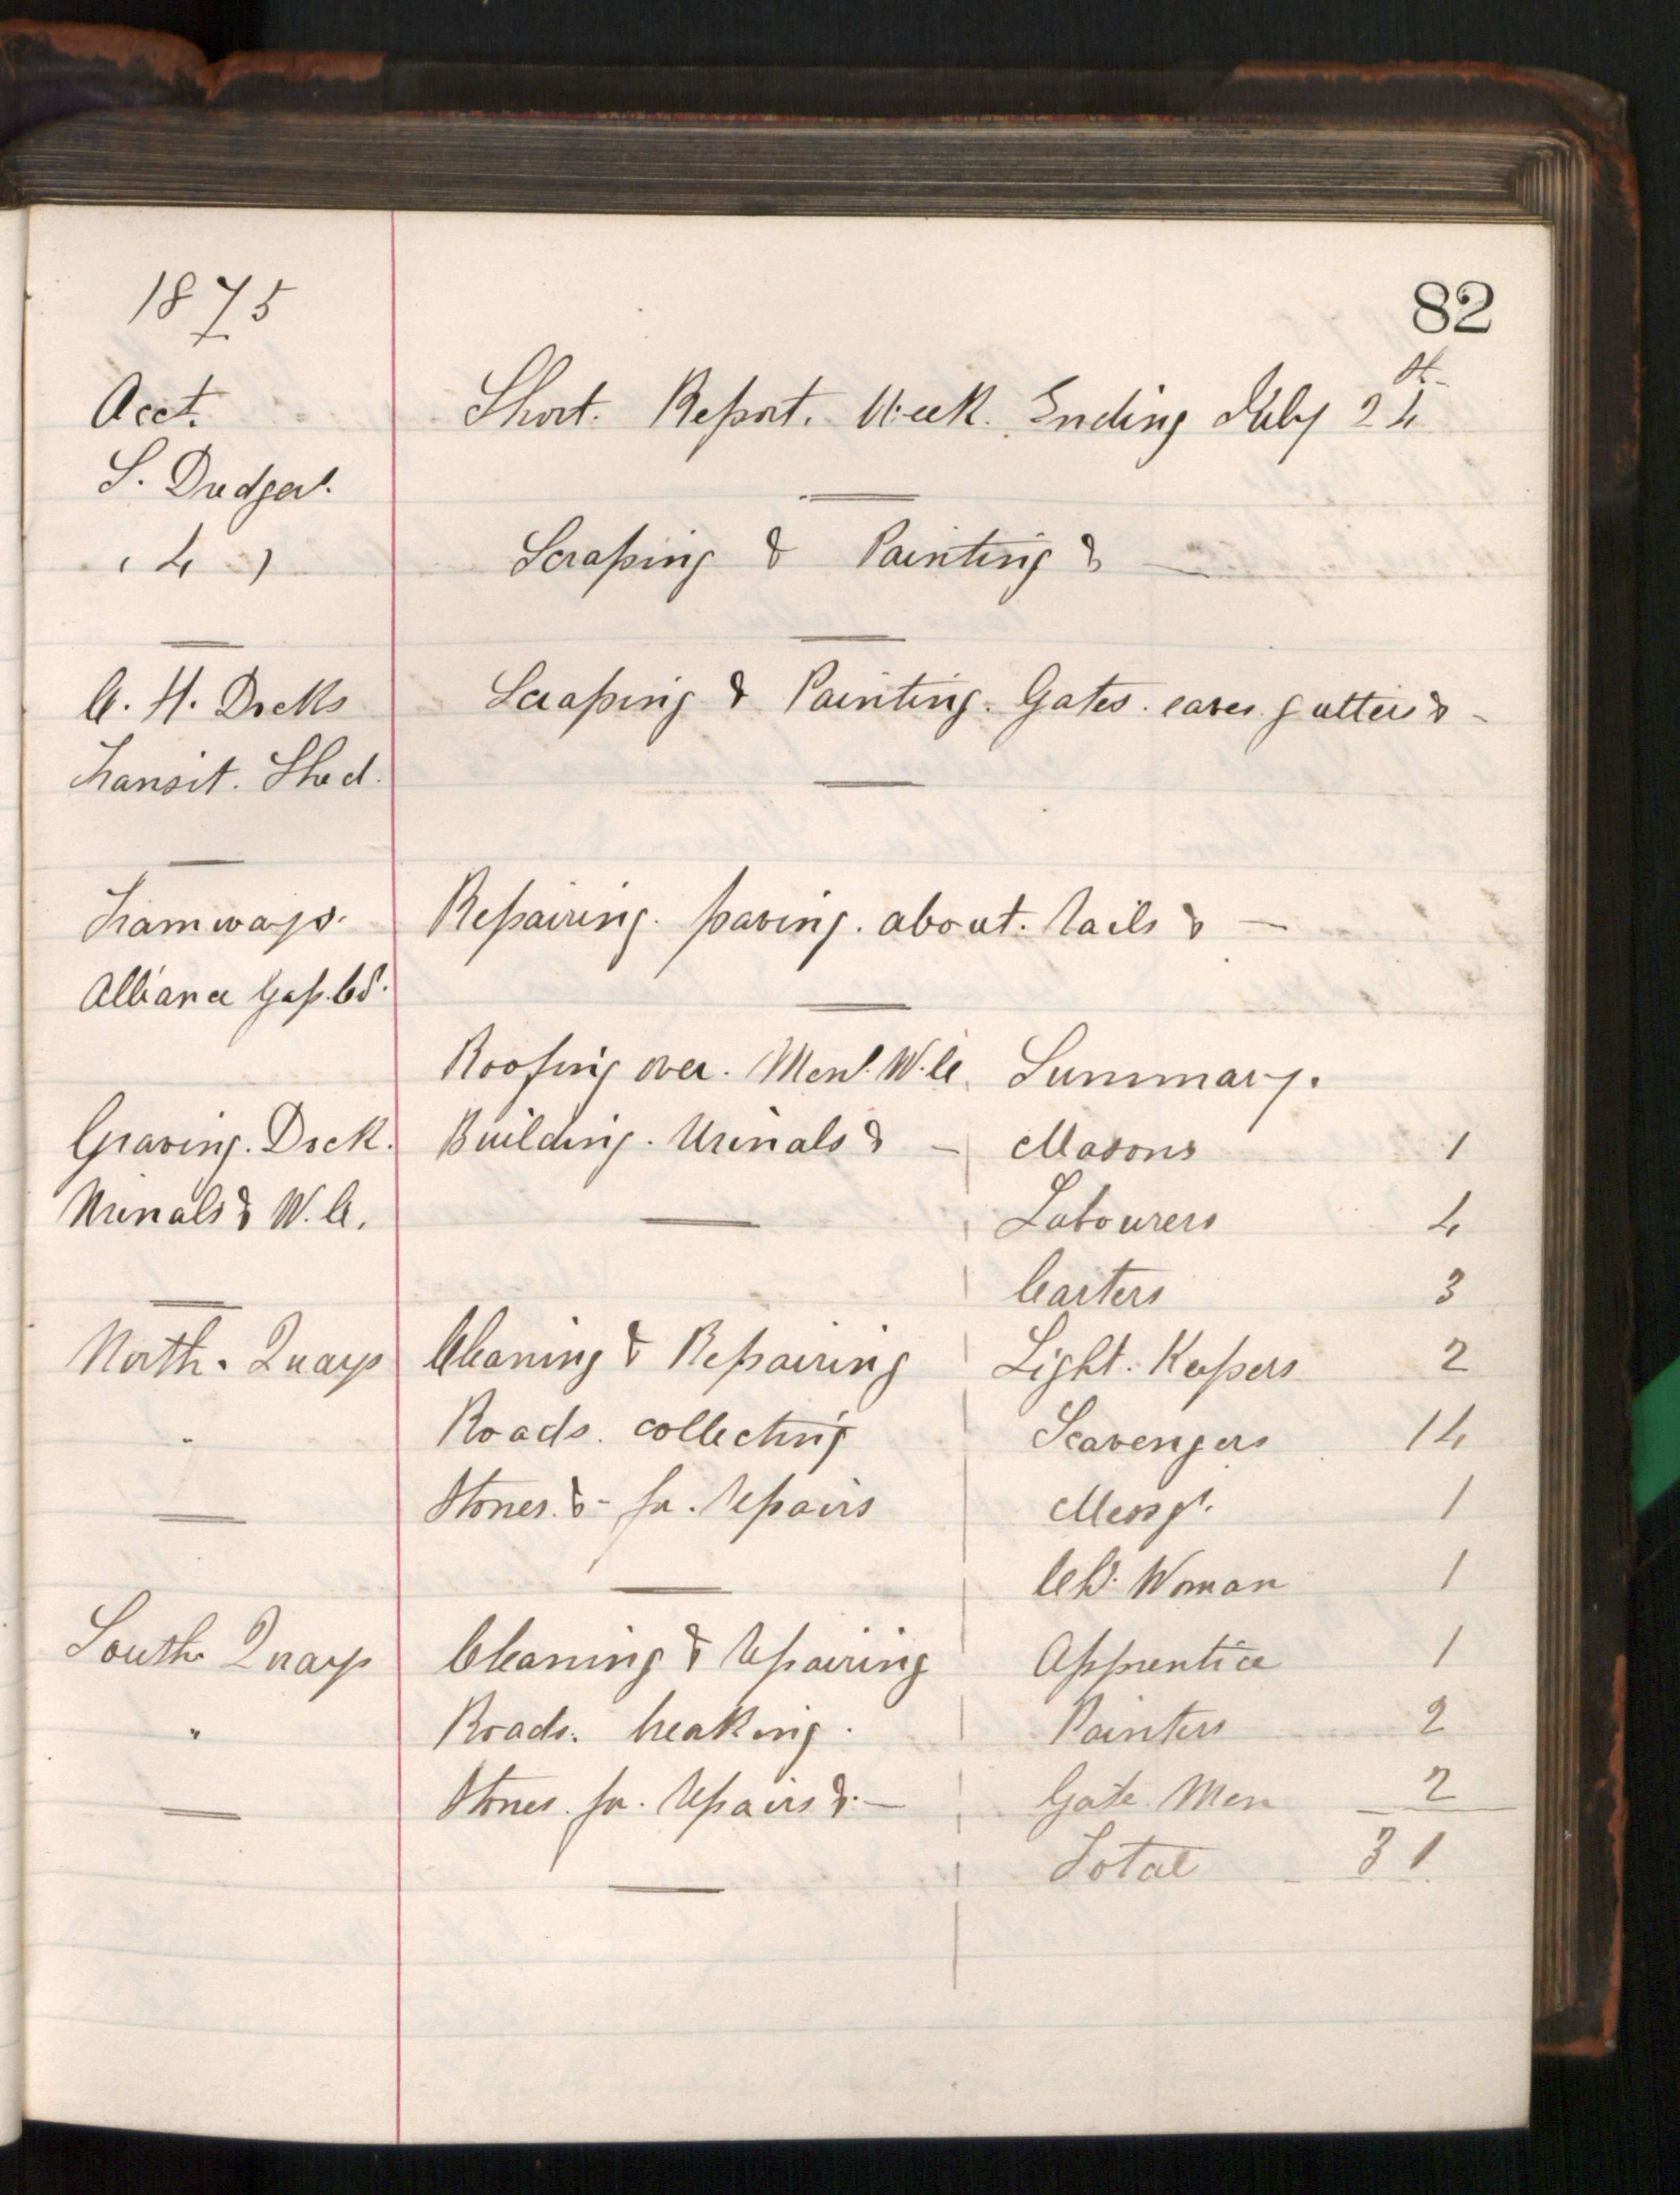 82
1875
Acct. Short. Report. Week. Ending July 24th
S. Dredger.
(4) Scraping & Painting &
C. H. Docks Scraping & Painting. Gates. eaves gutters &
Transit. Shed.
Tramways. Repairing. paving. about. Rails &
Alliance Gas. Co.
Roofing over. Mens. W.C. Summary.
Graving. Dock. Building. Urinals & Masons 1
Urinals & W.C. Labourers 4
Carters 3
North. Quays Cleaning & Repairing Light. Keepers 2
" Roads. collecting Scavengers 14
Stones. & for. Repairs Messgr. 1
Ch. Woman 1
South Quays Cleaning & Repairing Apprentice 1
" Roads. breaking. Painters 2
Stones. for. Repairs & Gate. Men 2
Total 31